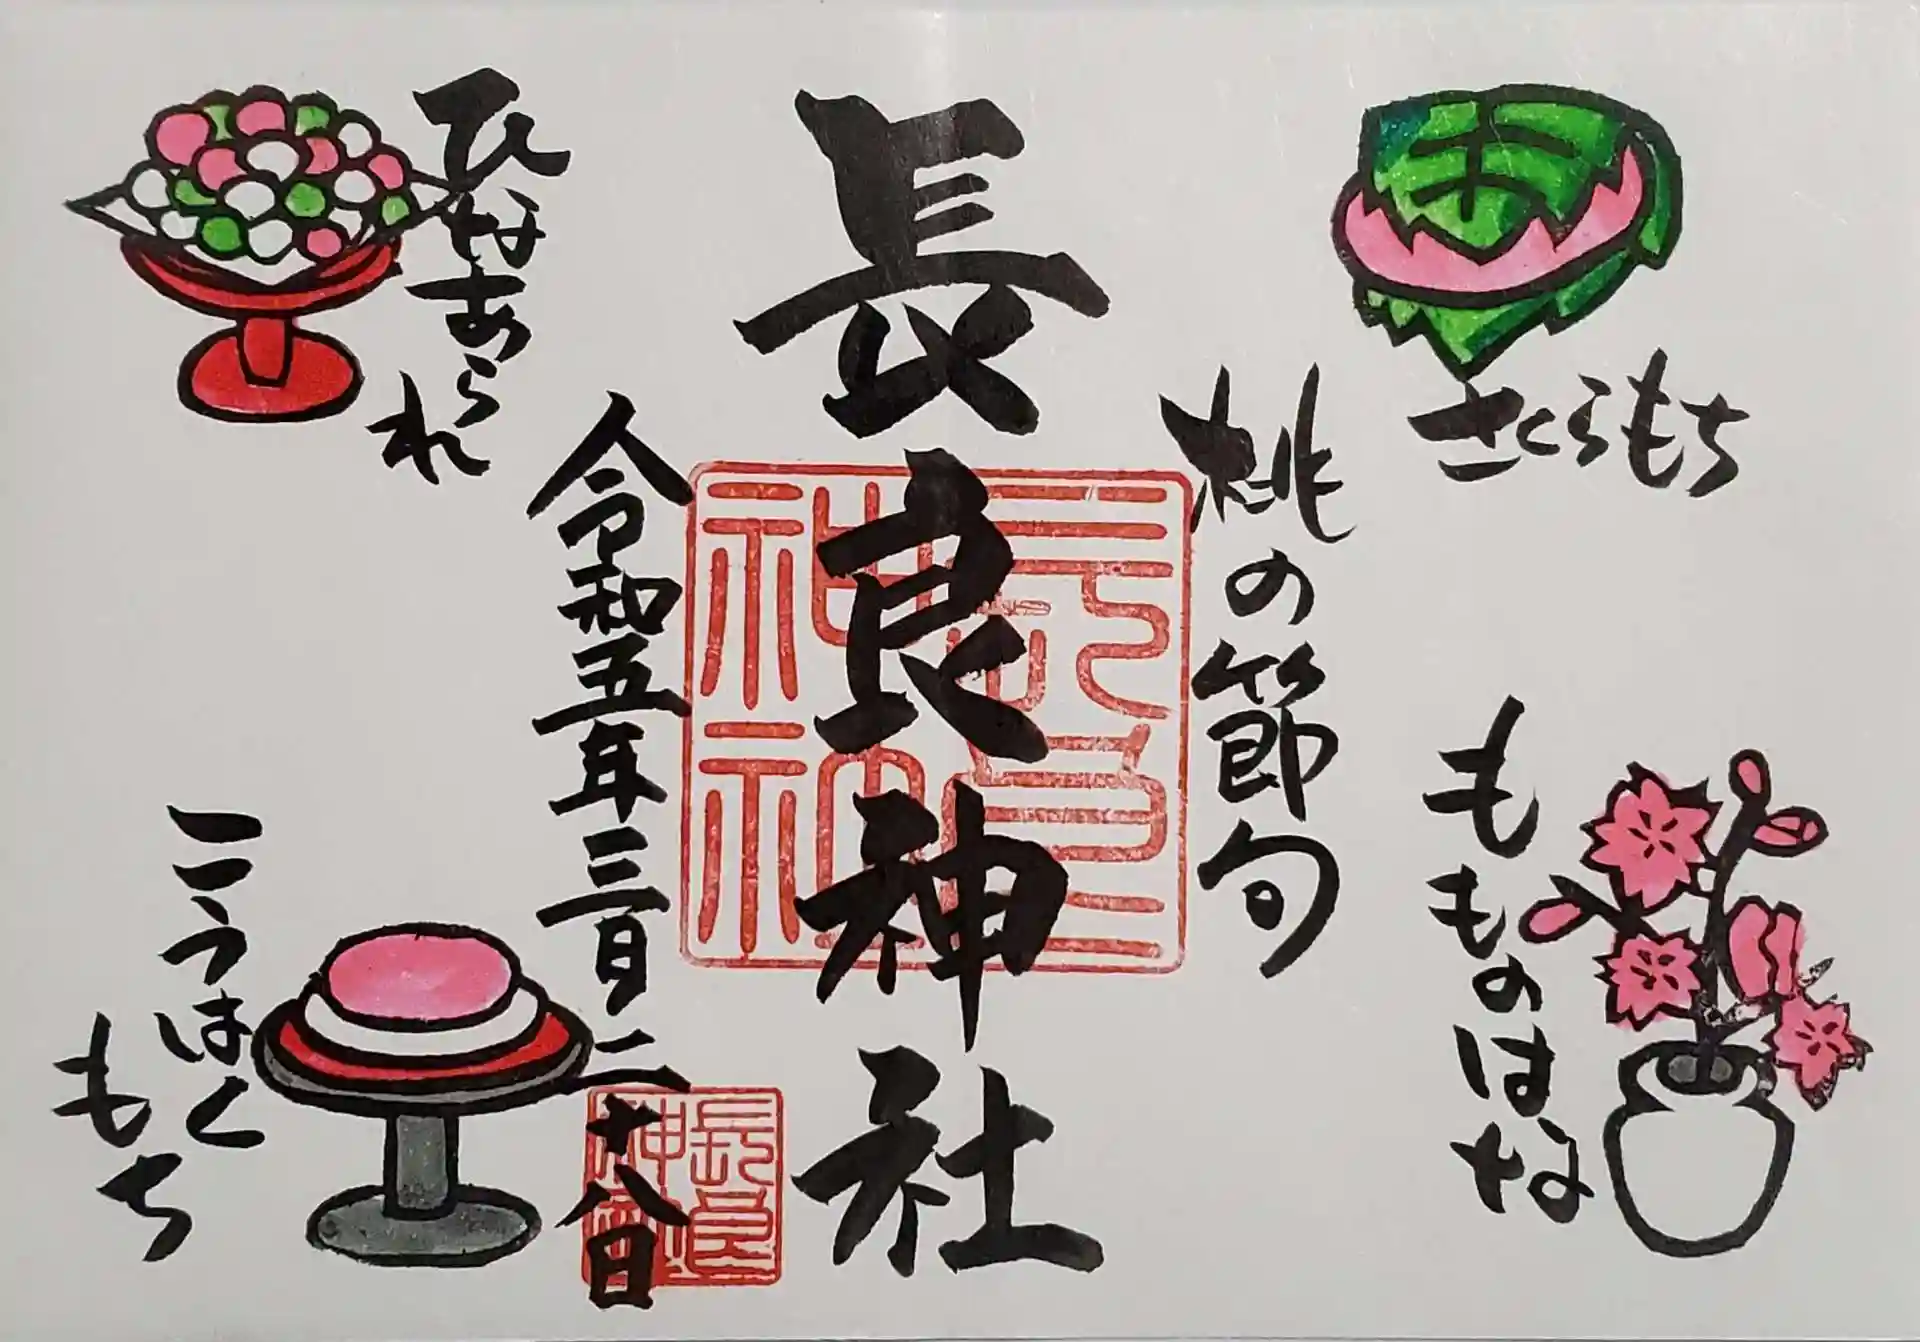 さくらもち
もものはな
桃の節句
長良神社
令和五年三月二十八日
ひなあられ
こうはく
もち